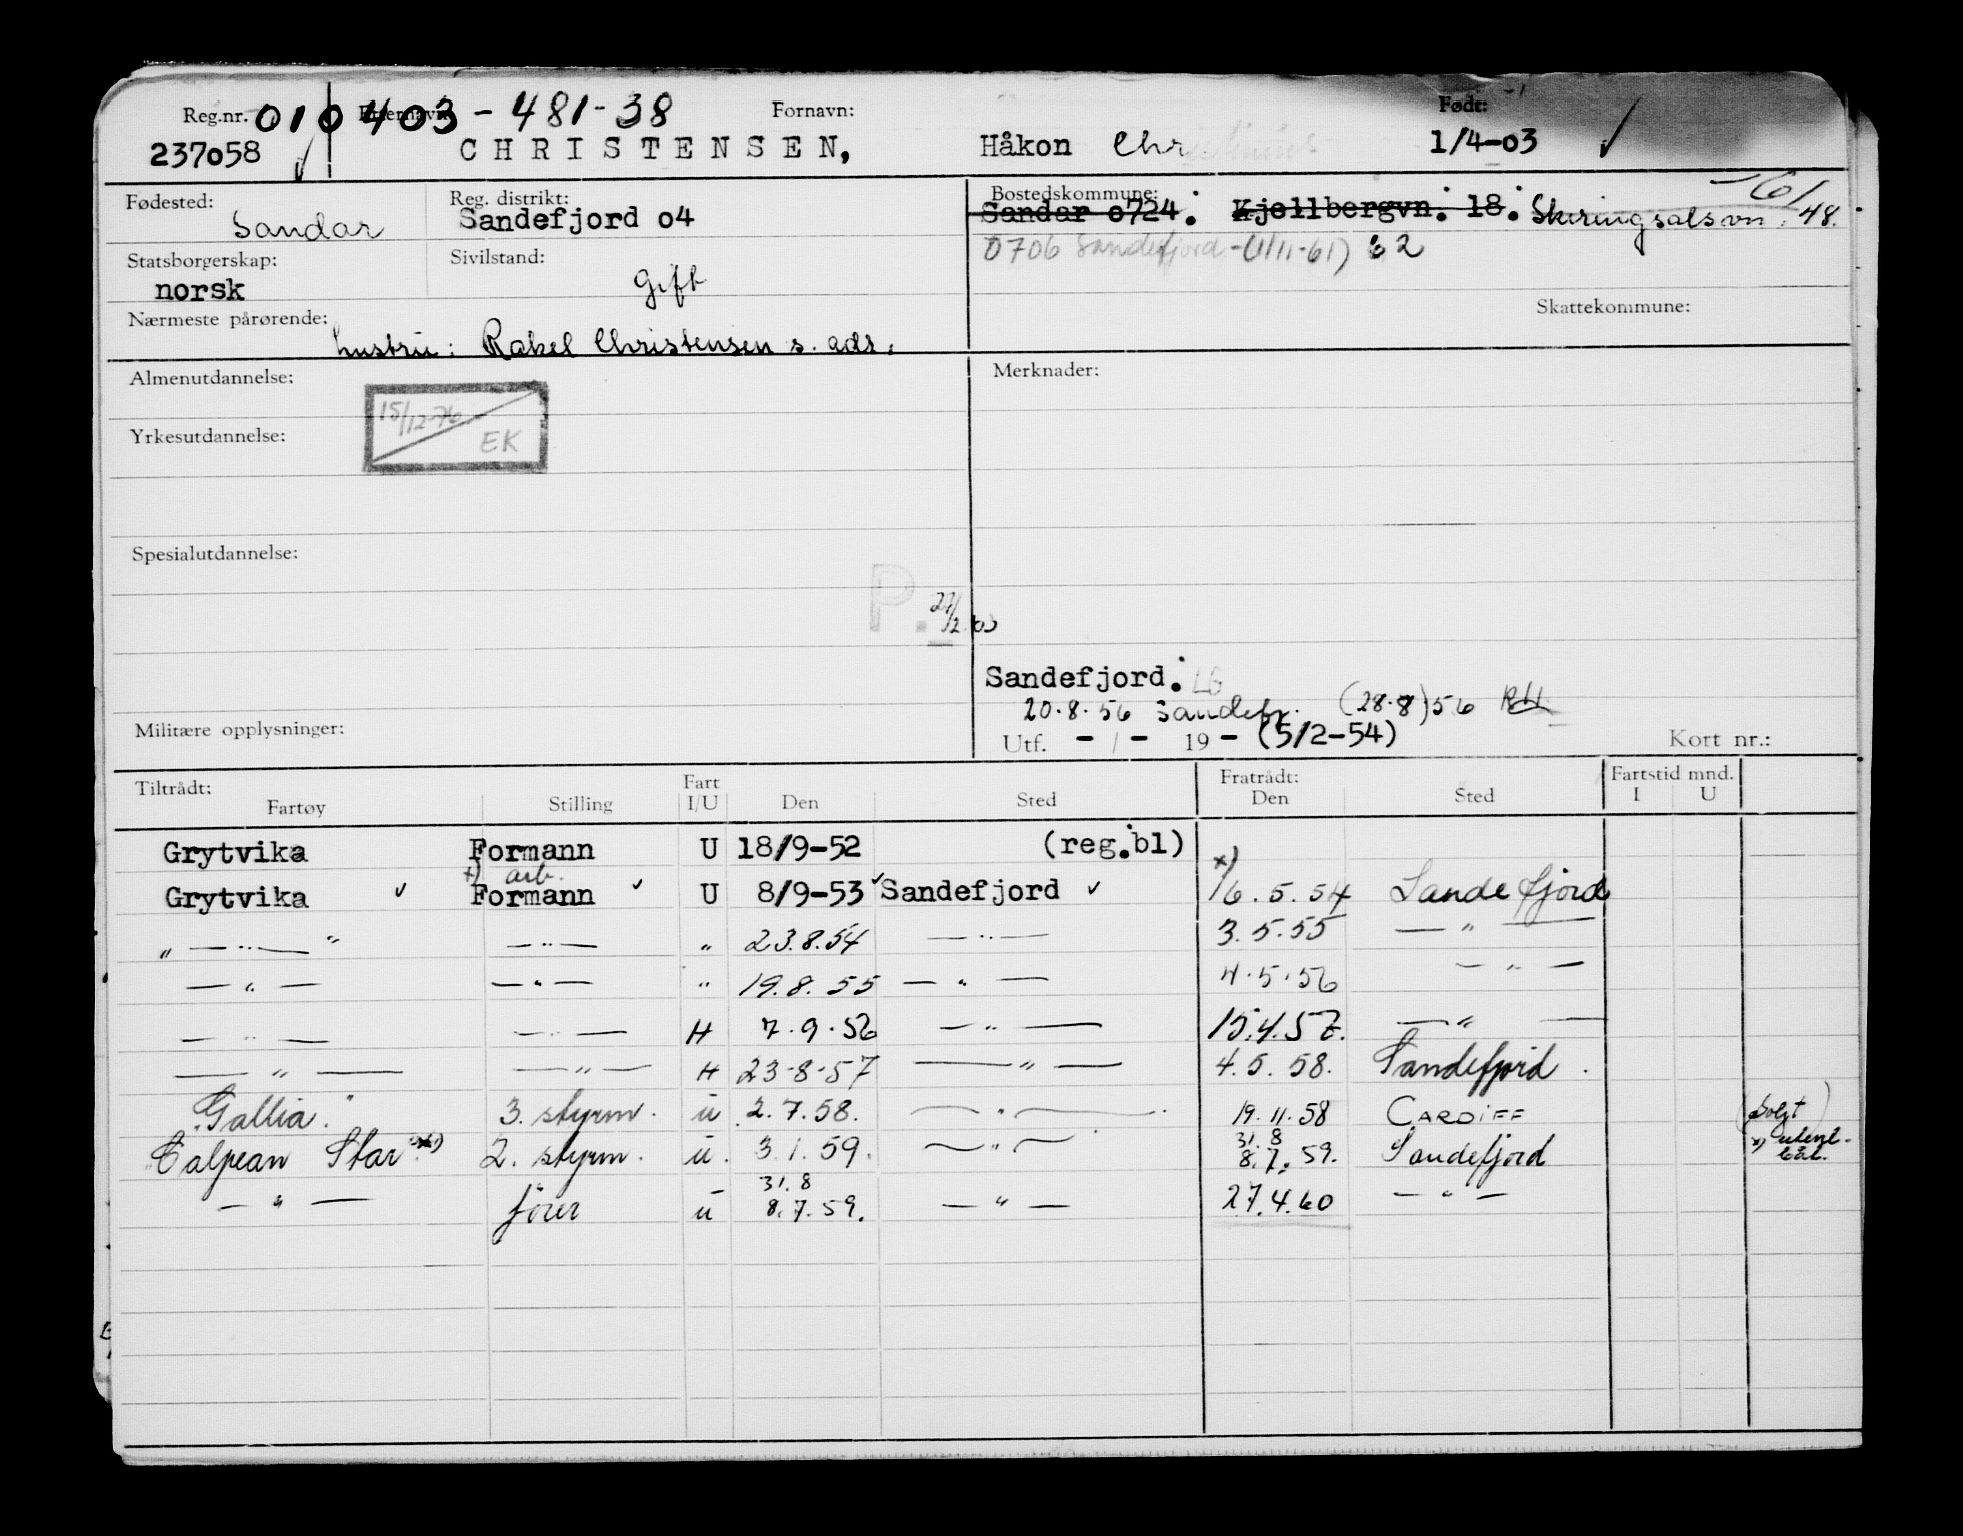 Reg.nr. 010403-481-38 Fornavn: Født:
237058 CHRISTENSEN, Håkon 1/4-03
Fødested: Reg. distrikt: Bostedskommune:
Sandar Sandefjord o4 Sandar o724. Kjellbergvn. 18. Skiringsalsvn. 48.
0706 Sandefjord-(1/11-61) 62
Statsborgerskap: Sivilstand:
norsk Gift
Nærmeste pårørende: Skattekommune:
hustru: Rakel Christensen s. adr.
Almenutdannelse: Merknader:
15/12-76
Yrkesutdannelse: EK
Spesialutdannelse:
P.
Sandefjord. LG
20.8.56 Sandefj. (28.8)56 RH
Militære opplysninger: Utf. - / - 19 - (5/2-54) Kort nr.:
Tiltrådt: Fart Fratrådt: Fartstid mnd.
Fartøy Stilling I/U Den Sted Den Sted I U
Grytvika Formann U 18/9-52 (reg.bl)
x) arb. x)
Grytvika Formann U 8/9-53 Sandefjord 16.5.54 Sandefjord
" — " — " — " — " 23.8.54 — " — 3.5.55 — " —
— " — — " — " 19.8.55 — " — 4.5.56 — " —
— " — — " — H 7.9.56 — " — 15.4.57. — " —
— " — — " — H 23-8-57 — " — 4.5.58. Sandefjord.
"Gallia." 3. styrm. u 2.7.58. — " — 19.11.58 CARDIFF (Solgt)
31.8
Calpean Star x) 2. styrm. u. 3.1.59. — " — 8.7.59. Sandefjord x) utenl. båt.
31.8
— " — fører u 8.7.59. — " — 27.4.60 — " —